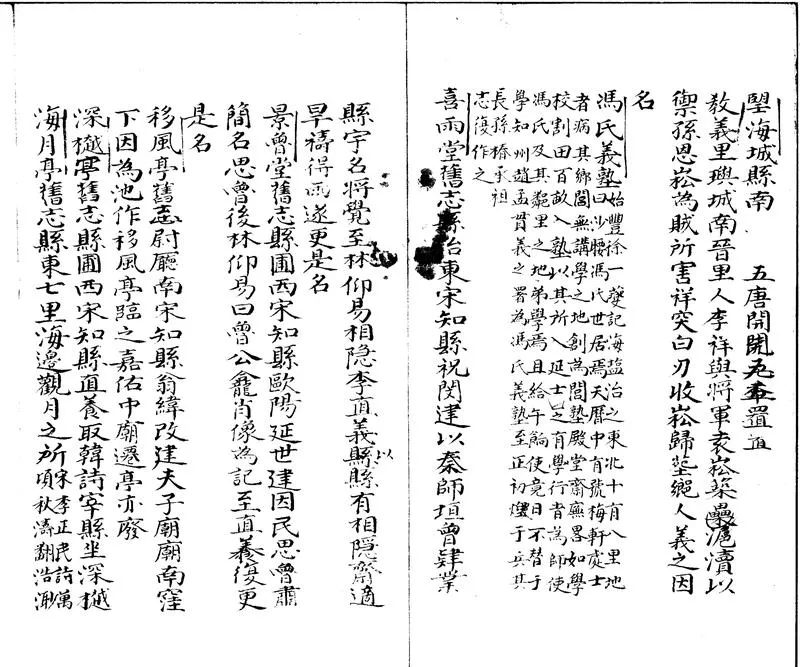 望海城縣南 五唐開元五年置
教義里璵城南晉里人李祥與將軍袁崧築滬瀆壘以
禦孫恩崧為賊所害祥突白刃收崧歸塟鄉人義之因
名
馮氏義塾始豐徐一夔記海盐治之東北十有八里地
曰沙腰馮氏世居焉天曆中有號梅軒處士
者病其鄉閭無講學之地創為閭塾殿堂齋廡畧如學
校割田百畝入塾以其所入延士之有學行者為師使
馮氏及其鄰里之地弟學焉且給午餉使竟日不替于
學知州趙孟貫義之署為馮氏義塾至正初燬于兵其
長孫椿承祖
志復作之
喜雨堂舊志縣治東宋知縣祝閔建以秦師垣曾肄業
縣宇名將覺至林仰易相隐李直義以縣有相隠齋適
旱禱得雨遂更是名
景魯堂舊志縣圃西宋知縣歐陽延世建因民思魯肅
簡名思魯後林仰易曰魯公龕肖像為記至直養復更
是名
移風亭舊志尉廳南宋知縣翁緯改建夫子廟廟南窪
下因為池作移風亭臨之嘉佑中廟遷亭亦廢
深樾亭舊志縣圃西宋知縣直養取韓詩宰縣坐深樾
海月亭舊志縣東七里海邊觀月之所宋李正民詩萬
項秋濤翻浩渺